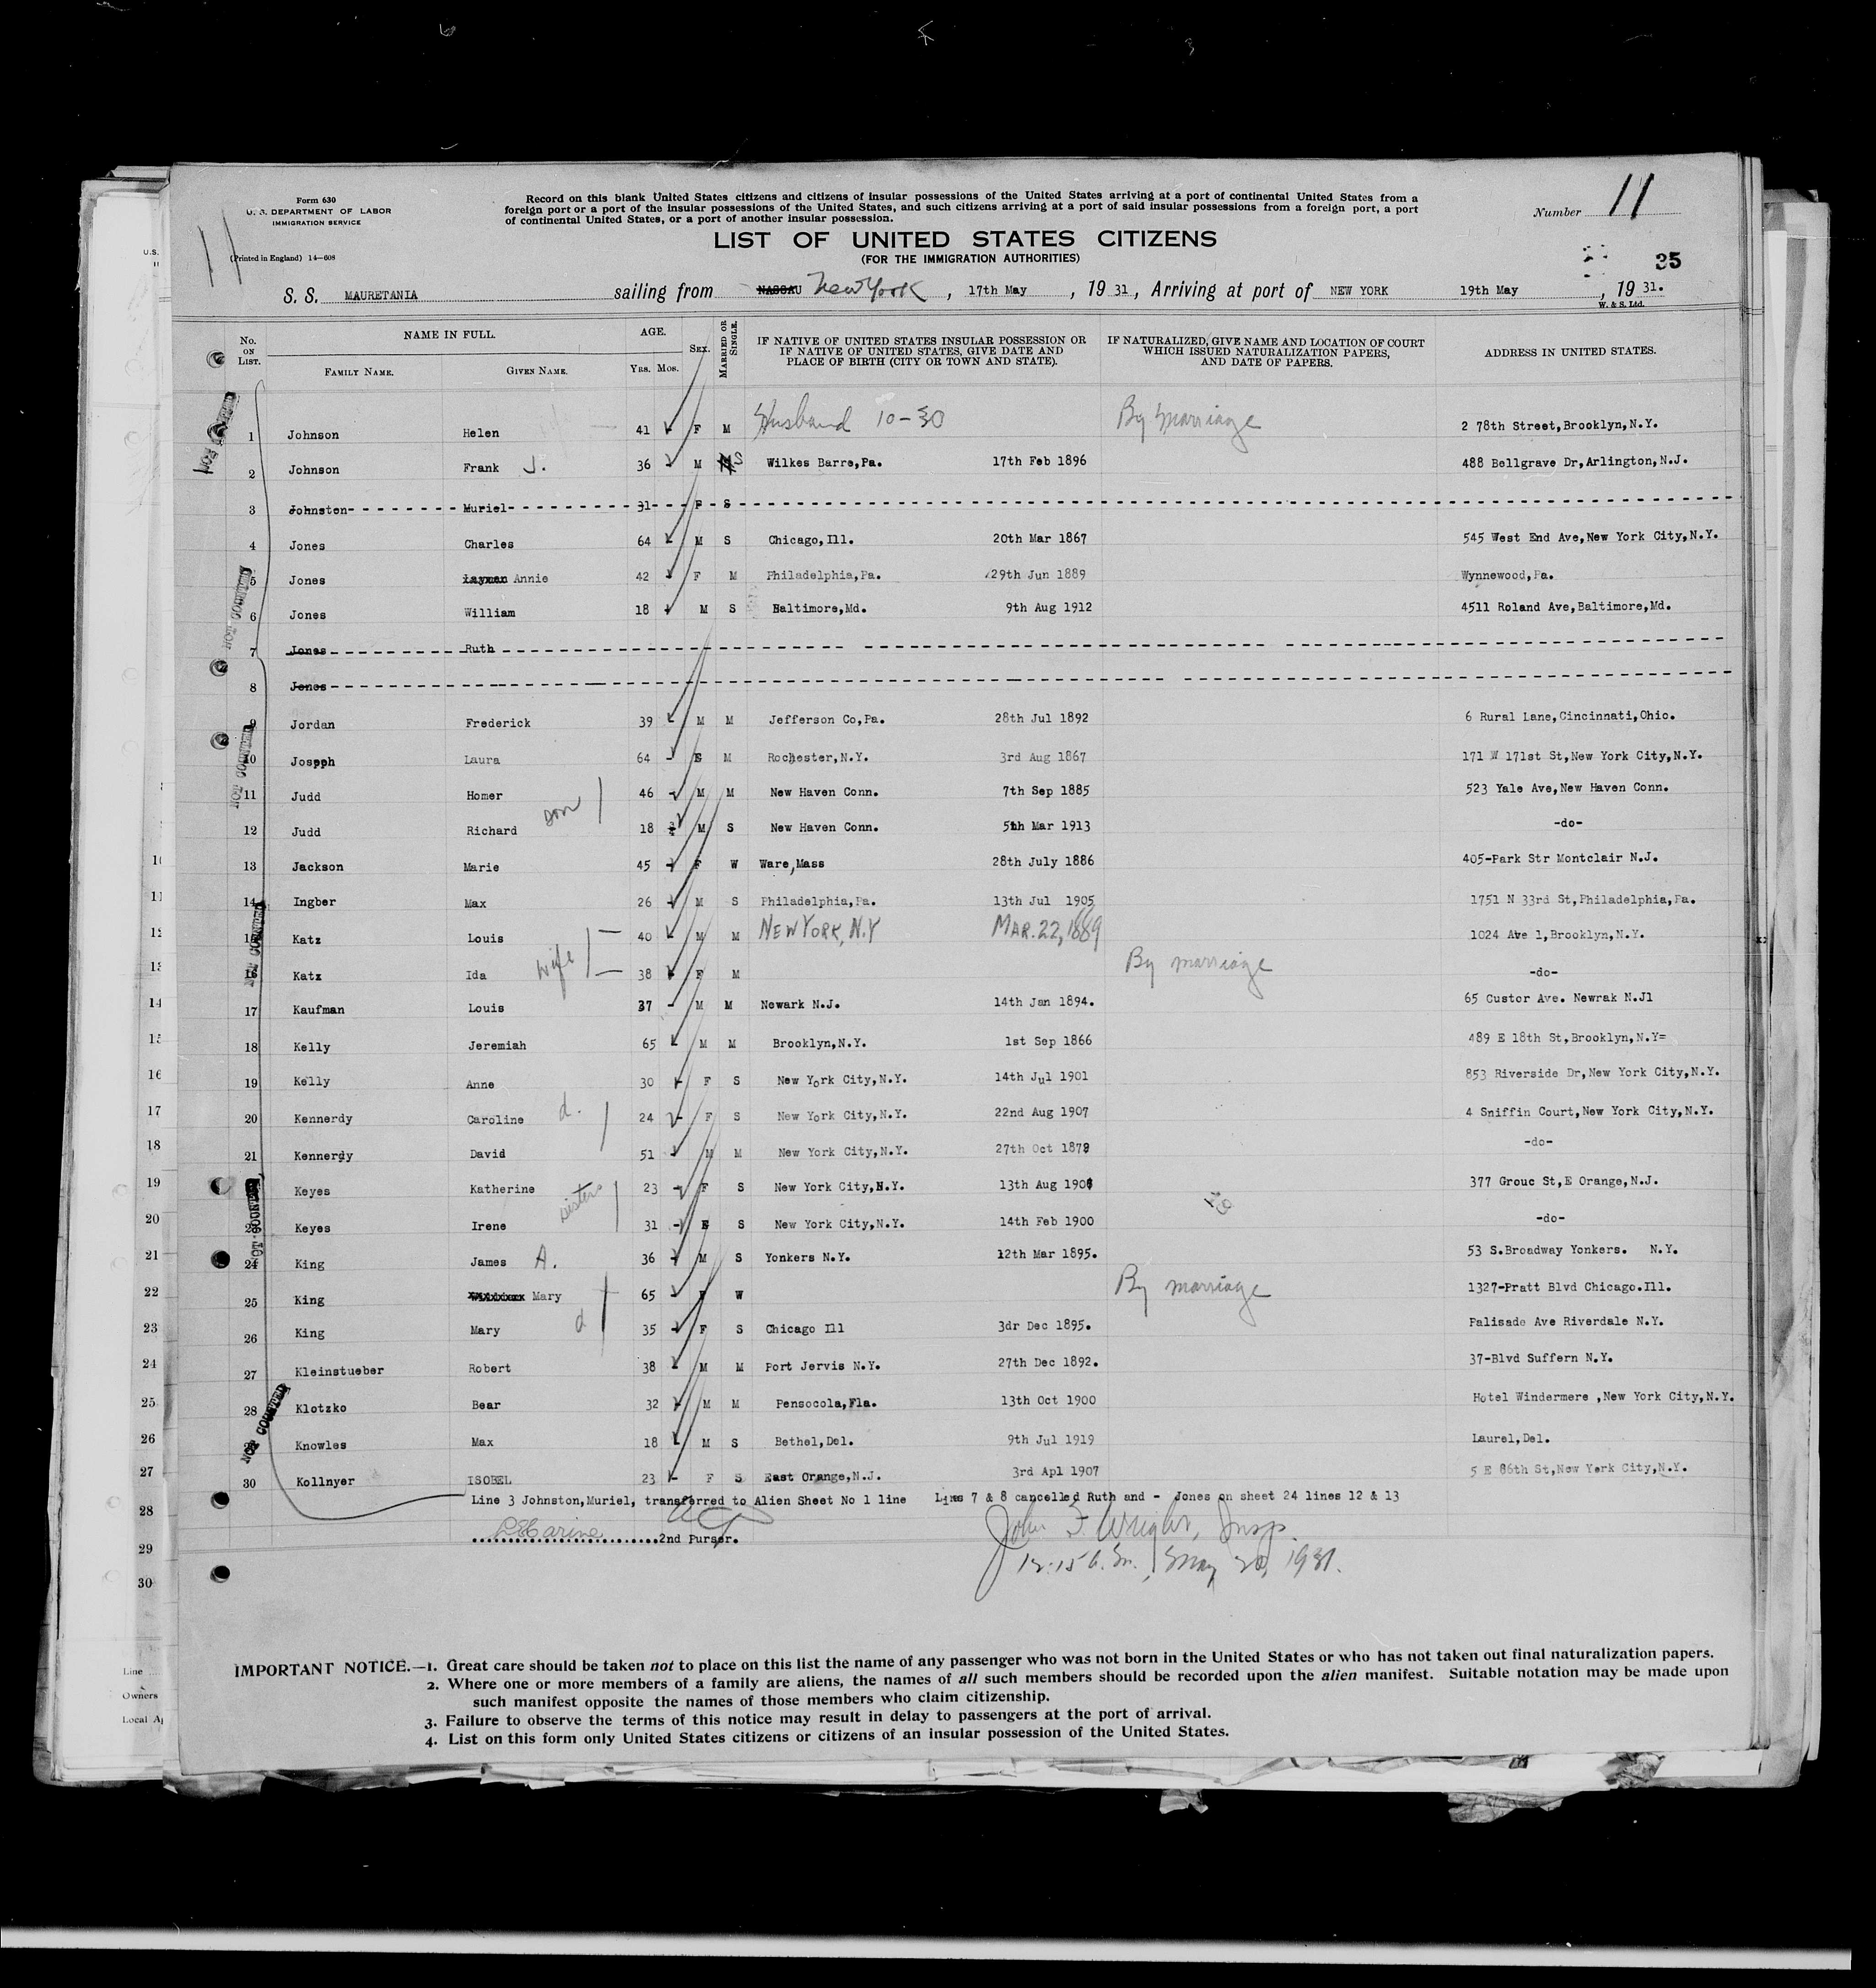 Form 630
U. S. DEPARTMENT OF LABOR
IMMIGRATION SERVICE
(Printed in England) 14—608
11
Record on this blank United States citizens and citizens of insular possessions of the United States arriving at a port of continental United States from a
foreign port or a port of the insular possessions of the United States, and such citizens arriving at a port of said insular possessions from a foreign port, a port
of continental United States, or a port of another insular possession.
Number 11
LIST OF UNITED STATES CITIZENS
(FOR THE IMMIGRATION AUTHORITIES)
35
S. S. MAURETANIA sailing from NASSAU New York, 17th May, 19 31, Arriving at port of NEW YORK 19th May, 19 31.
W. & S. Ltd.
No. ON LIST. NAME IN FULL. FAMILY NAME. GIVEN NAME. AGE. YRS. MOS. SEX. MARRIED OR SINGLE. IF NATIVE OF UNITED STATES INSULAR POSSESSION OR IF NATIVE OF UNITED STATES, GIVE DATE AND PLACE OF BIRTH (CITY OR TOWN AND STATE). IF NATURALIZED, GIVE NAME AND LOCATION OF COURT WHICH ISSUED NATURALIZATION PAPERS, AND DATE OF PAPERS. ADDRESS IN UNITED STATES.
1 Johnson Helen 41 F M Husband 10-30 By marriage 2 78th Street,Brooklyn,N.Y.
2 Johnson Frank J. 36 M M S Wilkes Barre,Pa. 17th Feb 1896 488 Bellgrave Dr,Arlington,N.J.
3 Johnston Muriel 31 F S
4 Jones Charles 64 M S Chicago,Ill. 20th Mar 1867 545 West End Ave,New York City,N.Y.
5 Jones Layman Annie 42 F M Philadelphia,Pa. 29th Jun 1889 Wynnewood,Pa.
6 Jones William 18 M S Baltimore,Md. 9th Aug 1912 4511 Roland Ave,Baltimore,Md.
7 Jones Ruth
8 Jones
9 Jordan Frederick 39 M M Jefferson Co,Pa. 28th Jul 1892 6 Rural Lane,Cincinnati,Ohio.
10 Joseph Laura 64 F M Rochester,N.Y. 3rd Aug 1867 171 W 171st St,New York City,N.Y.
11 Judd Homer 46 M M New Haven Conn. 7th Sep 1885 523 Yale Ave,New Haven Conn.
12 Judd Richard son 18 M S New Haven Conn. 5th Mar 1913 -do-
13 Jackson Marie 45 F W Ware,Mass 28th July 1886 405-Park Str Montclair N.J.
14 Ingber Max 26 M S Philadelphia,Pa. 13th Jul 1905 1751 N 33rd St,Philadelphia,Pa.
15 Katz Louis 40 M M NEW YORK, N.Y MAR. 22, 1889 1024 Ave l,Brooklyn,N.Y.
16 Katz Ida wife 38 F M By marriage -do-
17 Kaufman Louis 37 M M Newark N.J. 14th Jan 1894. 65 Custor Ave. Newrak N.Jl
18 Kelly Jeremiah 65 M M Brooklyn,N.Y. 1st Sep 1866 489 E 18th St,Brooklyn,N.Y=
19 Kelly Anne 30 F S New York City,N.Y. 14th Jul 1901 853 Riverside Dr,New York City,N.Y.
20 Kennerdy Caroline d. 24 F S New York City,N.Y. 22nd Aug 1907 4 Sniffin Court,New York City,N.Y.
21 Kennerdy David 51 M M New York City,N.Y. 27th Oct 1879 -do-
Keyes Katherine sisters 23 F S New York City,N.Y. 13th Aug 1908 377 Grouc St,E Orange,N.J.
23 Keyes Irene 31 F S New York City,N.Y. 14th Feb 1900 -do-
24 King James A. 36 M S Yonkers N.Y. 12th Mar 1895. 53 S.Broadway Yonkers. N.Y.
25 King Mary 65 F W By marriage 1327-Pratt Blvd Chicago.Ill.
26 King Mary d 35 F S Chicago Ill 3dr Dec 1895. Palisade Ave Riverdale N.Y.
27 Kleinstueber Robert 38 M M Port Jervis N.Y. 27th Dec 1892. 37-Blvd Suffern N.Y.
28 Klotzko Bear 32 M M Pensocola,Fla. 13th Oct 1900 Hotel Windermere ,New York City,N.Y.
29 Knowles Max 18 M S Bethel,Del. 9th Jul 1919 Laurel,Del.
30 Kollnyer ISOBEL 23 F S East Orange,N.J. 3rd Apl 1907 5 E 86th St,New York City,N.Y.
NOT COUNTED
NOT COUNTED
NOT COUNTED
NOT COUNTED
NOT COUNTED
NOT COUNTED
Line 3 Johnston,Muriel, transferred to Alien Sheet No 1 line Line 7 & 8 cancelled Ruth and - Jones on sheet 24 lines 12 & 13
2nd Purser.
John F. Wright, Insp.
12:15 A.M., May 20, 1931.
IMPORTANT NOTICE.—1. Great care should be taken not to place on this list the name of any passenger who was not born in the United States or who has not taken out final naturalization papers.
2. Where one or more members of a family are aliens, the names of all such members should be recorded upon the alien manifest. Suitable notation may be made upon
such manifest opposite the names of those members who claim citizenship.
3. Failure to observe the terms of this notice may result in delay to passengers at the port of arrival.
4. List on this form only United States citizens or citizens of an insular possession of the United States.
U.S.
10
11
12
13
14
15
16
17
18
19
20
21
22
23
24
25
26
27
28
29
30
Line
Owners
Local